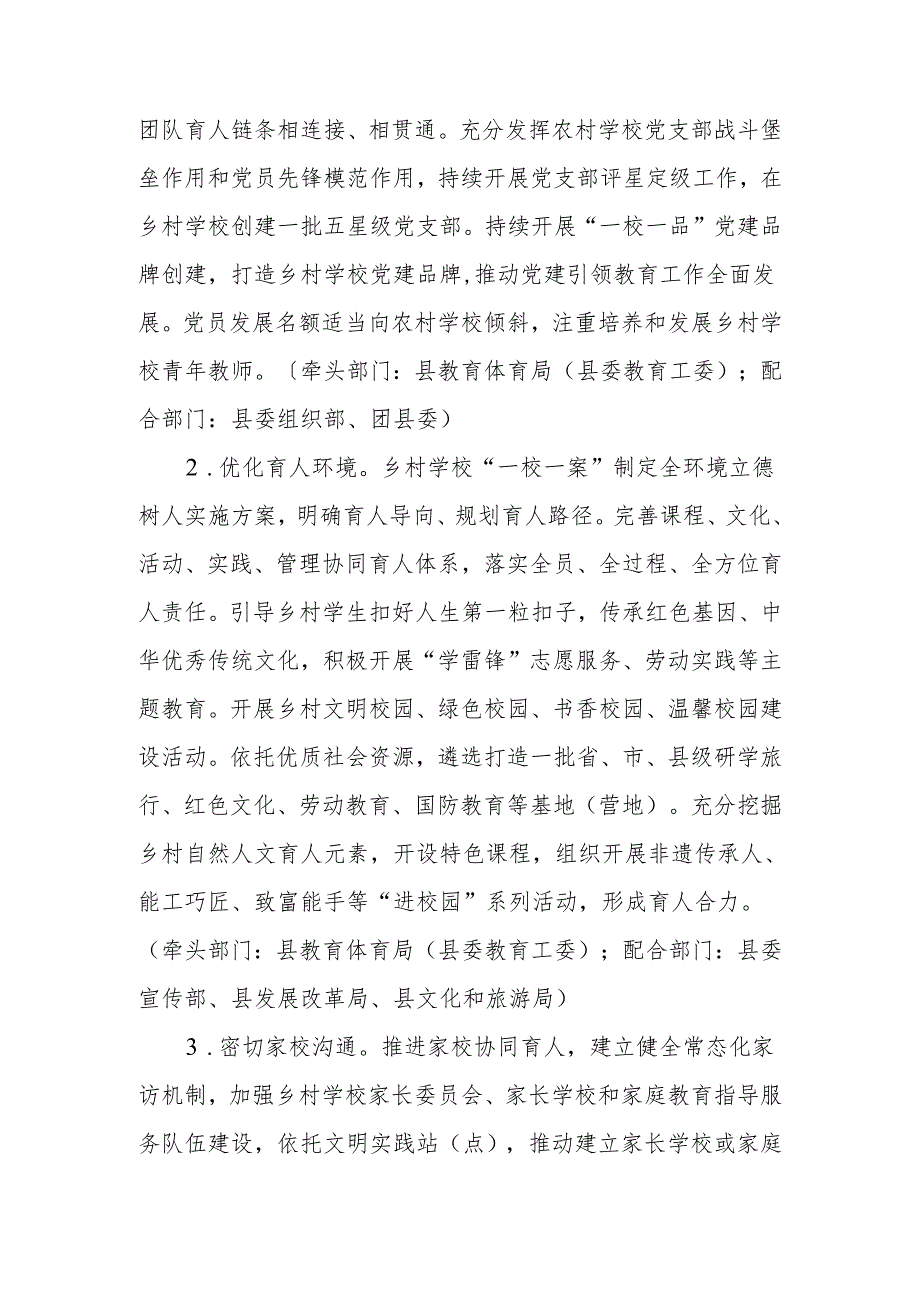 团队育人链条相连接、相贯通。充分发挥农村学校党支部战斗堡
垒作用和党员先锋模范作用，持续开展党支部评星定级工作，在
乡村学校创建一批五星级党支部。持续开展“一校一品”党建品
牌创建，打造乡村学校党建品牌,推动党建引领教育工作全面发
展。党员发展名额适当向农村学校倾斜，注重培养和发展乡村学
校青年教师。〔牵头部门：县教育体育局（县委教育工委）；配
合部门：县委组织部、团县委）
2 . 优化育人环境。乡村学校“一校一案”制定全环境立德
树人实施方案，明确育人导向、规划育人路径。完善课程、文化、
活动、实践、管理协同育人体系，落实全员、全过程、全方位育
人责任。引导乡村学生扣好人生第一粒扣子，传承红色基因、中
华优秀传统文化，积极开展“学雷锋”志愿服务、劳动实践等主
题教育。开展乡村文明校园、绿色校园、书香校园、温馨校园建
设活动。依托优质社会资源，遴选打造一批省、市、县级研学旅
行、红色文化、劳动教育、国防教育等基地（营地）。充分挖掘
乡村自然人文育人元素，开设特色课程，组织开展非遗传承人、
能工巧匠、致富能手等“进校园”系列活动，形成育人合力。
（牵头部门：县教育体育局（县委教育工委）；配合部门：县委
宣传部、县发展改革局、县文化和旅游局）
3 . 密切家校沟通。推进家校协同育人，建立健全常态化家
访机制，加强乡村学校家长委员会、家长学校和家庭教育指导服
务队伍建设，依托文明实践站（点），推动建立家长学校或家庭